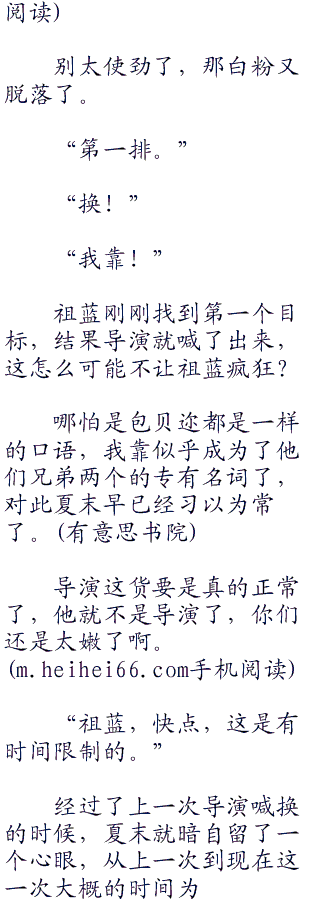 阅读)
别太使劲了，那白粉又
脱落了。
“第一排。”
“换！”
“我靠！”
祖蓝刚刚找到第一个目
标，结果导演就喊了出来，
这怎么可能不让祖蓝疯狂？
哪怕是包贝迩都是一样
的口语，我靠似乎成为了他
们兄弟两个的专有名词了，
对此夏末早已经习以为常
了。(有意思书院)
导演这货要是真的正常
了，他就不是导演了，你们
还是太嫩了啊。
(m.heihei66.com手机阅读)
“祖蓝，快点，这是有
时间限制的。”
经过了上一次导演喊换
的时候，夏末就暗自留了一
个心眼，从上一次到现在这
一次大概的时间为